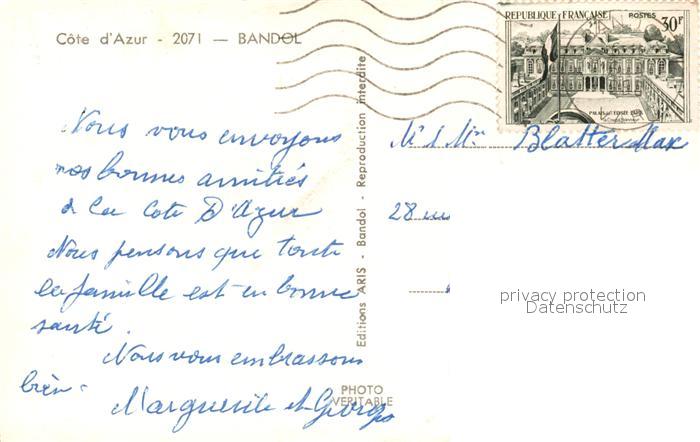 Côte d'Azur - 2071 — BANDOL
REPUBLIQUE FRANÇAISE POSTES
30F
PALAIS DE L'ELYSÉE PARIS
Nous vous envoyons
nos bonnes amitiés
de la Cote D'Azur
Nous pensons que toute
la famille est en bonne
santé.
Nous vous embrassons
bien.
Marguerite et Georges
Editions ARIS - Bandol - Reproduction interdite
PHOTO
VERITABLE
Mr & Mme Blatter Max
28
privacy protection
Datenschutz